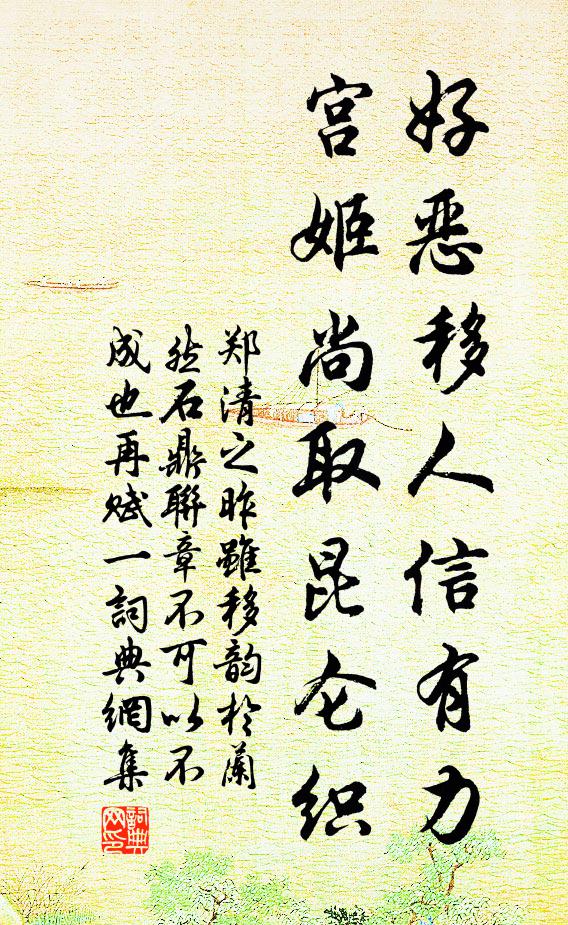 好恶移人信有力
宫姬尚取昆仑织
郑清之昨雖移韵於蘭
然石鼎聯章不可以不
成也再赋一詞典網集
詞典網印